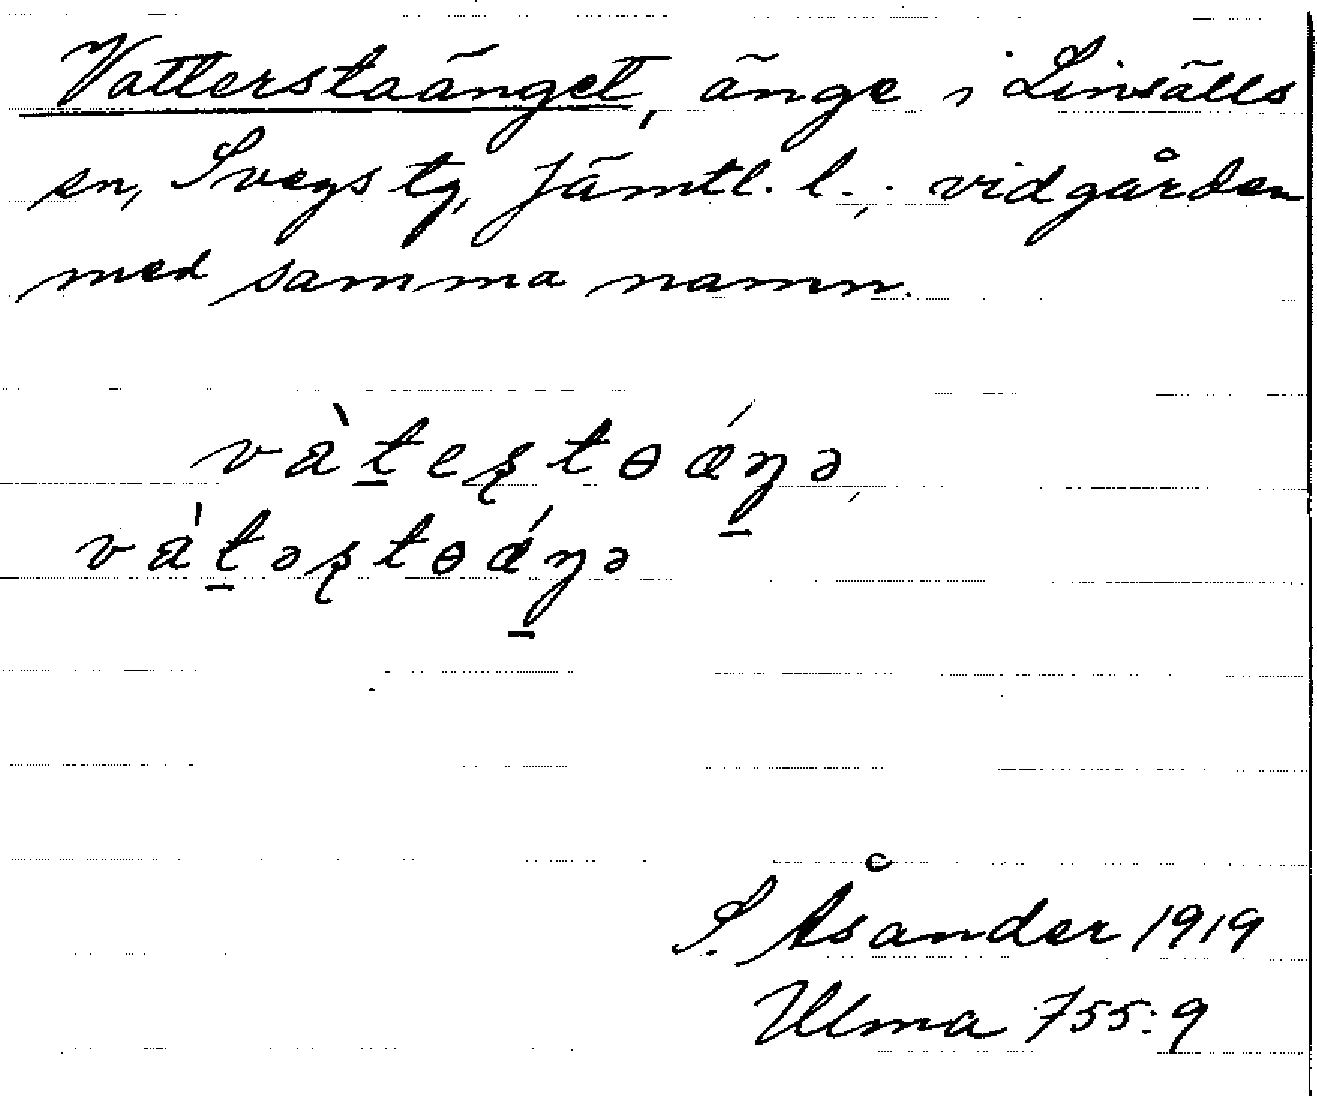 Vatterstaänget, änge i Linsälls
sn, Svegs tg, Jämtl. l.; vid gården
med samma namn.
và̀t̠eʂtɵǽŋ̠ə,
và̀t̠əʂtɵǽŋ̠ə
S. Åsander 1919
Ulma 755:9